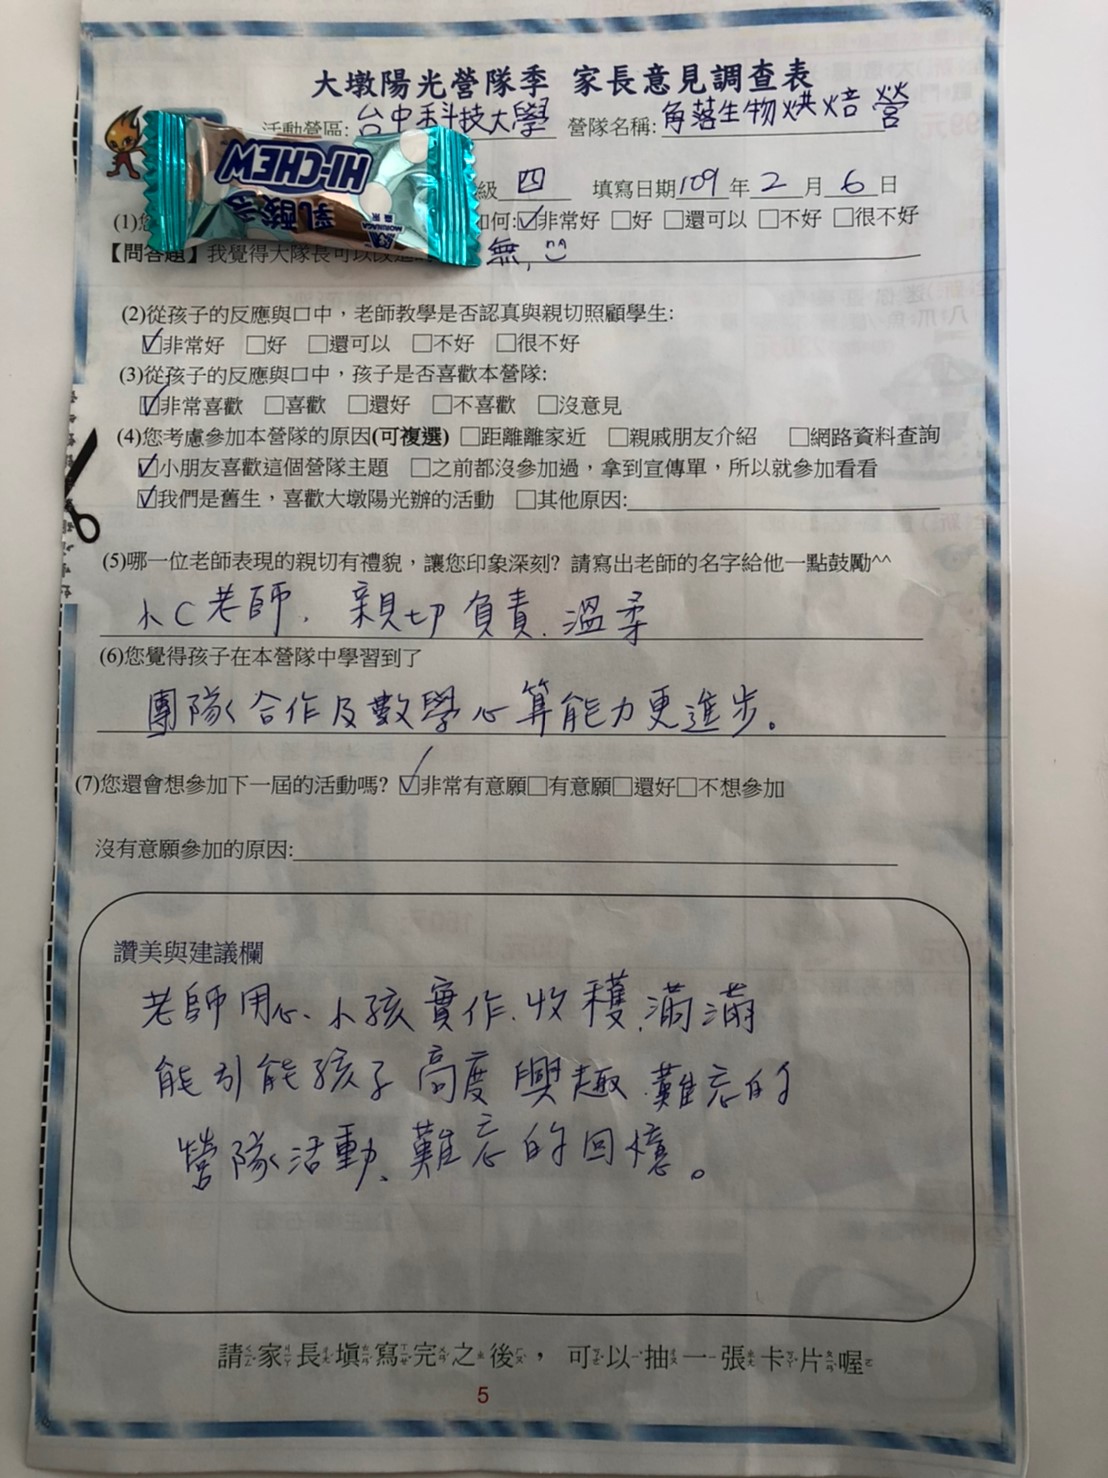 大墩陽光營隊季 家長意見調查表
活動營區: 台中科技大學 營隊名稱: 角落生物烘焙營
HI-CHEW
乳酸多
MORINAGA
森永
級 四 填寫日期109年2月6日
(1)您 如何:☑非常好 □好 □還可以 □不好 □很不好
【問答題】我覺得大隊長可以改進 無,
(2)從孩子的反應與口中，老師教學是否認真與親切照顧學生:
☑非常好 □好 □還可以 □不好 □很不好
(3)從孩子的反應與口中，孩子是否喜歡本營隊:
☑非常喜歡 □喜歡 □還好 □不喜歡 □沒意見
(4)您考慮參加本營隊的原因(可複選) □距離離家近 □親戚朋友介紹 □網路資料查詢
☑小朋友喜歡這個營隊主題 □之前都沒參加過，拿到宣傳單，所以就參加看看
☑我們是舊生，喜歡大墩陽光辦的活動 □其他原因:
(5)哪一位老師表現的親切有禮貌，讓您印象深刻? 請寫出老師的名字給他一點鼓勵^^
小C老師、親切負責、溫柔
(6)您覺得孩子在本營隊中學習到了
團隊合作及數學心算能力更進步。
(7)您還會想參加下一屆的活動嗎? ☑非常有意願□有意願□還好□不想參加
沒有意願參加的原因:
讚美與建議欄
老師用心、小孩實作、收穫滿滿
能引能孩子高度興趣、難忘的
營隊活動、難忘的回憶。
請家長填寫完之後，可以抽一張卡片喔
5